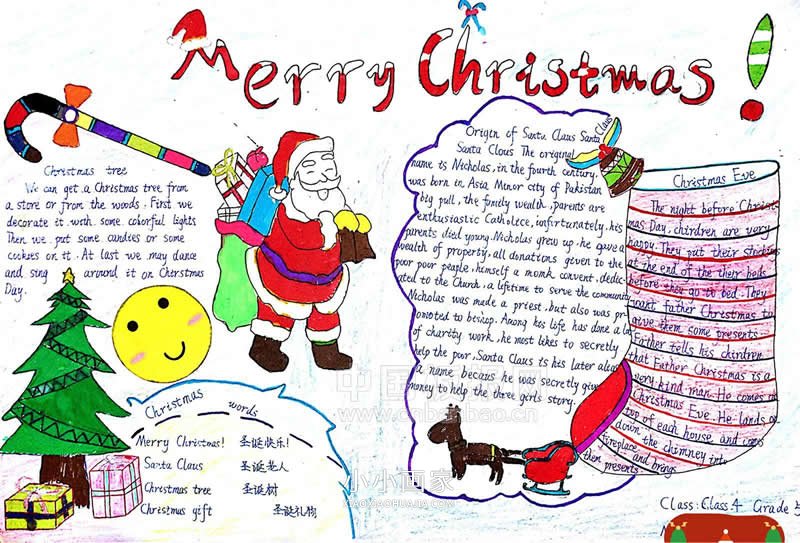 Merry Christmas!
Christmas tree
We can get a Christmas tree from
a store or from the woods. First we
decorate it with some colorful lights
Then we put some candies or some
cookies on it. At last we may dance
and sing around it on Christmas
Day.
Origin of Santa Claus Santa Claus
Santa Clous The original
name is Nicholas, in the fourth century,
was born in Asia Minor city of Pakistan
big pull, the family wealth, parents are
enthusiastic Catholice, unfortunately, his
parents died young. Nicholas grew up, he gave a
wealth of property, all donations given to the
poor poor people, himself a monk convent, dedic
ated to the Church, a lifetime to serve the community
Nicholas was made a priest, but also was pr
omoted to bishop. Among his life has done a lot
of charity work, he most likes to secretly
help the poor, Santa Claus is his later alias
a name because he was secretly give
money to help the three girls story.
Christmas Eve
The night before Christ
mas Day, chirdren are very
happy. They put their stockings
at the end of the their beds
before they go to bed. They
want father Christmas to
give them some presents
Father tells his chirdren
that Father Christmas is a
very kind man. He comes on
Christmas Eve. He lands on
top of each house and comes
down the chimney into
fireplace and brings
them presents
Christmas words
Merry Christmas! 圣诞快乐!
Santa Claus 圣诞老人
Christmas tree 圣诞树
Christmas gift 圣诞礼物
小小画家
XIAOXIAOHUAJIA.COM
Class: Class 4 Grade 5